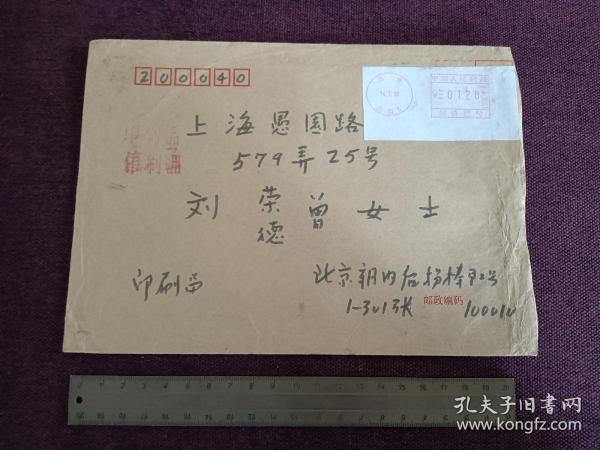 200040
中国人民邮政
0120
上海愚园路
579弄25号
刘荣德曾女士
印刷品
北京朝内后拐棒甲2号
1-301张
邮政编码 100010
孔夫子旧书网
www.kongfz.com